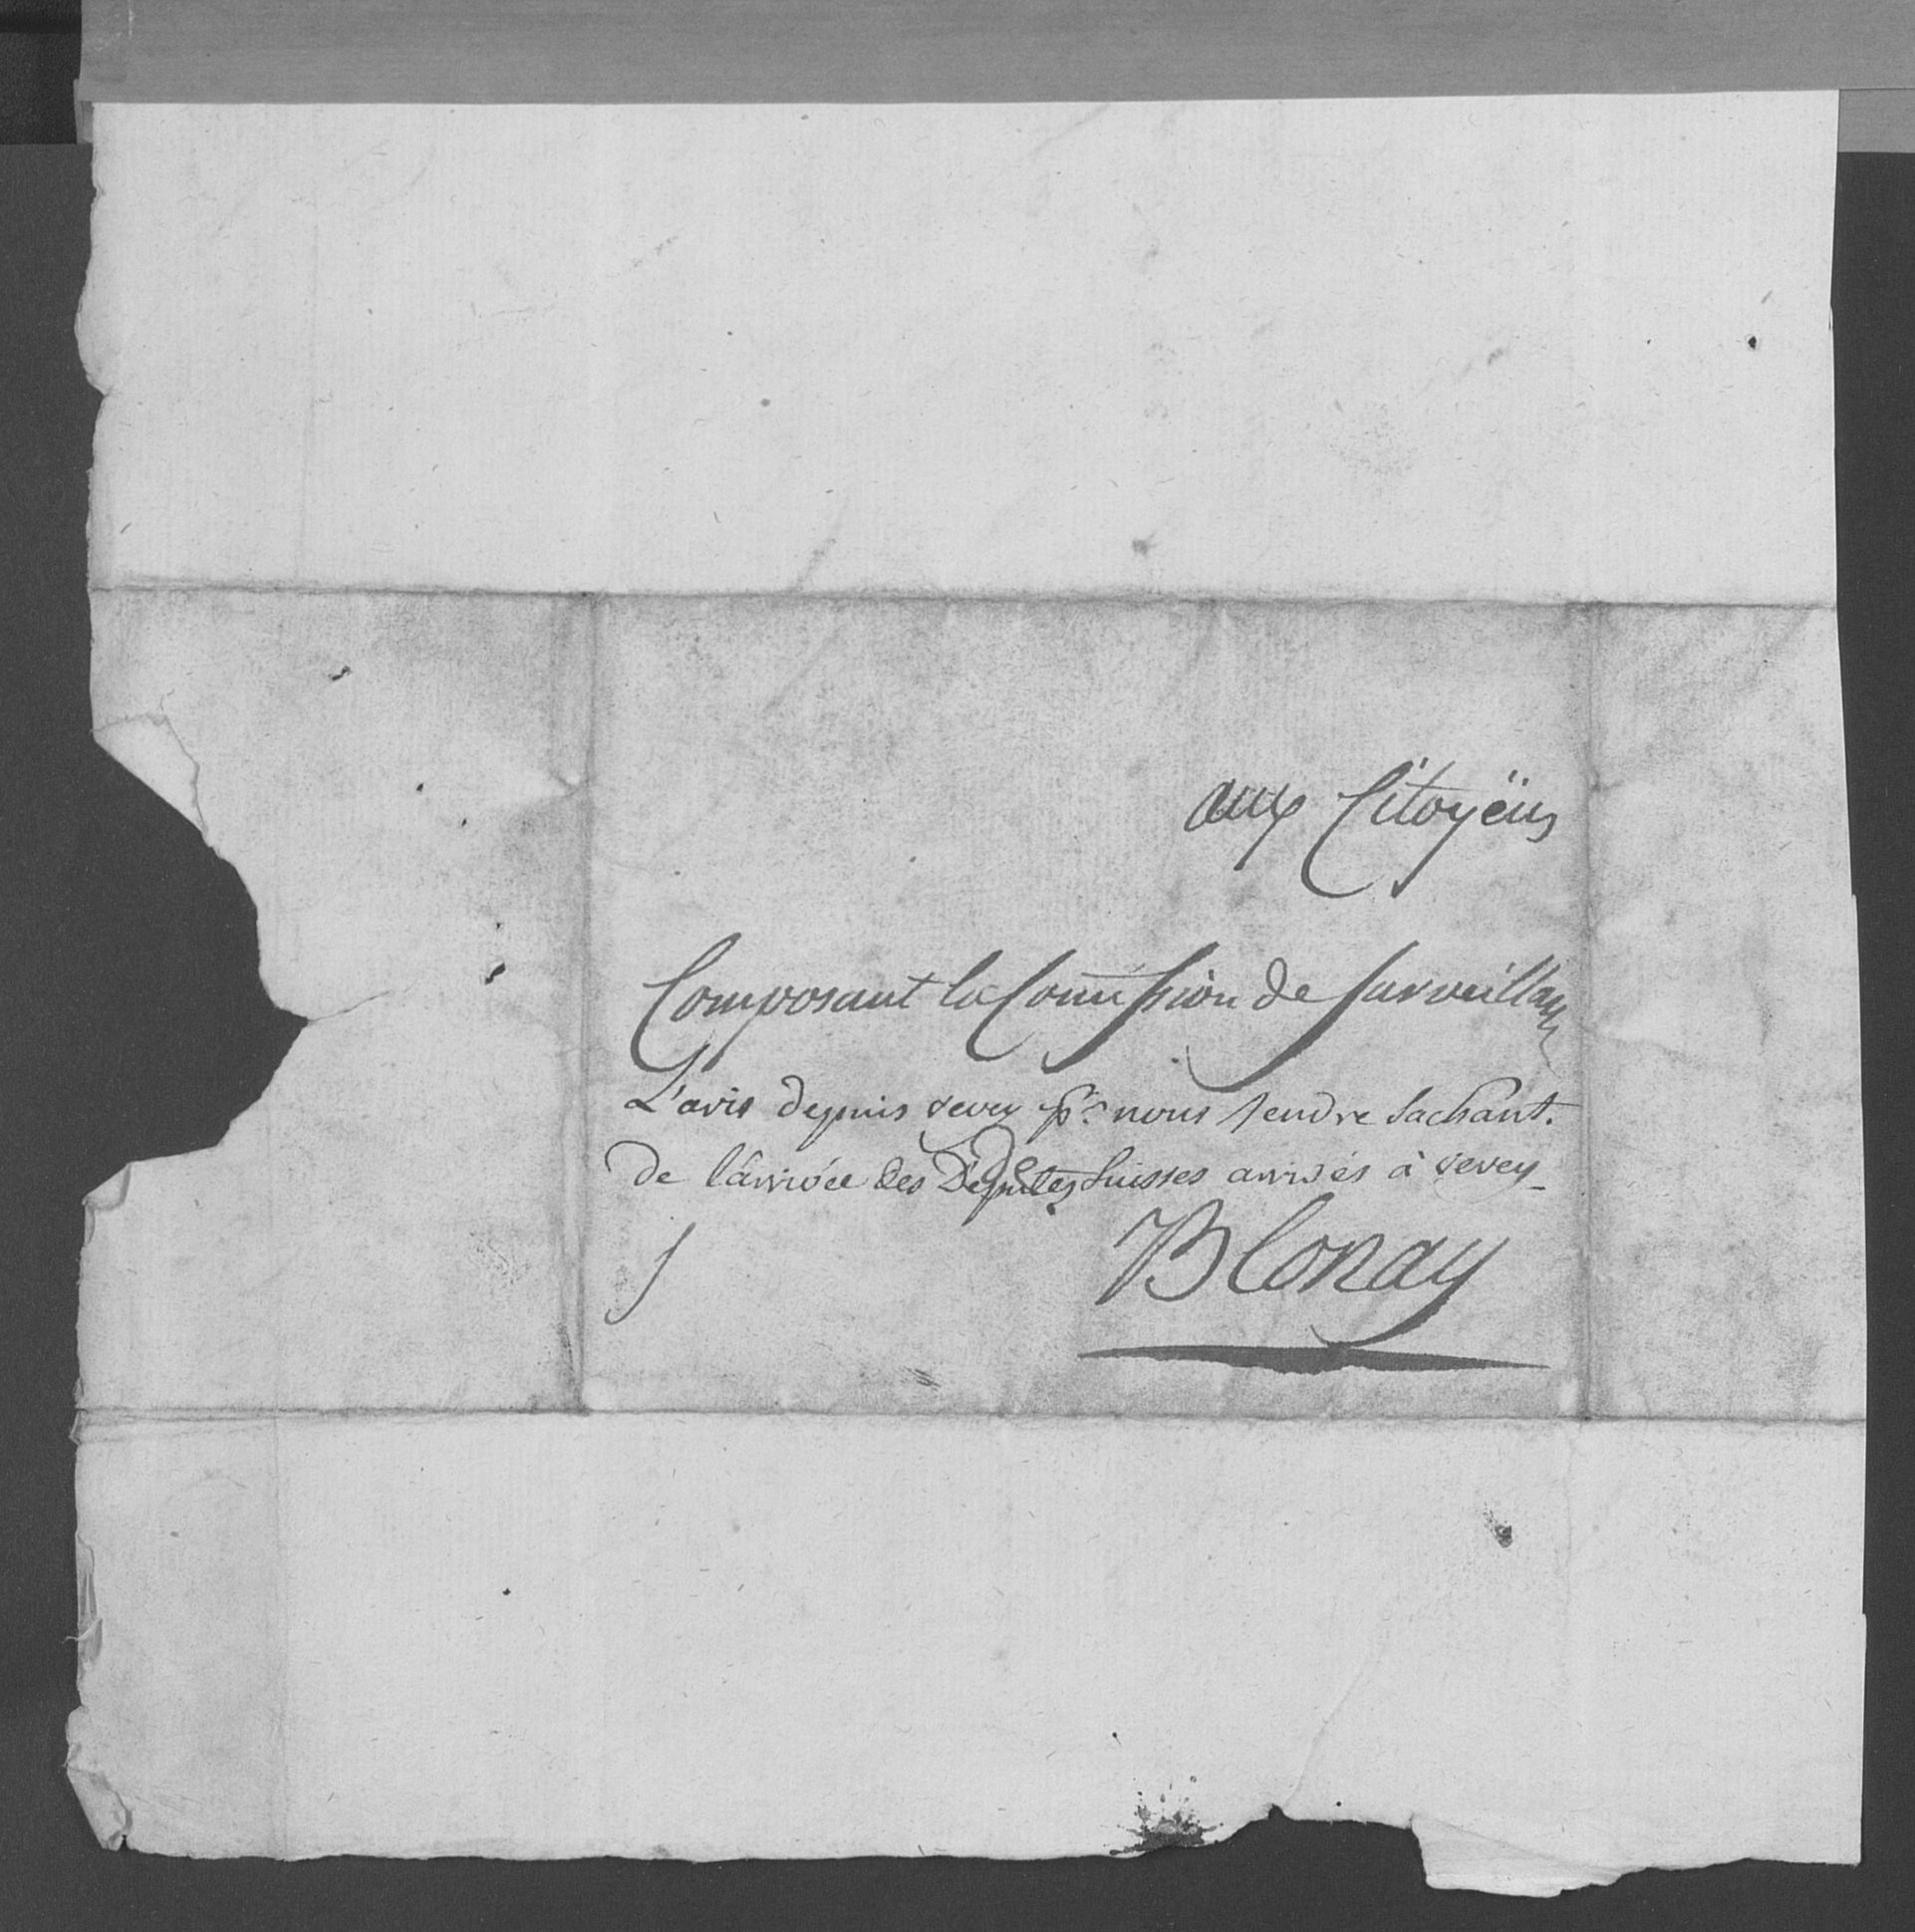 aux Citoyëns
Composant la Com̃ission de surveillance
L'avis depuis vevey pr. nous rendre sachant.
de l'arrivée des Députés Suisses arrivés à vevey
Blonay